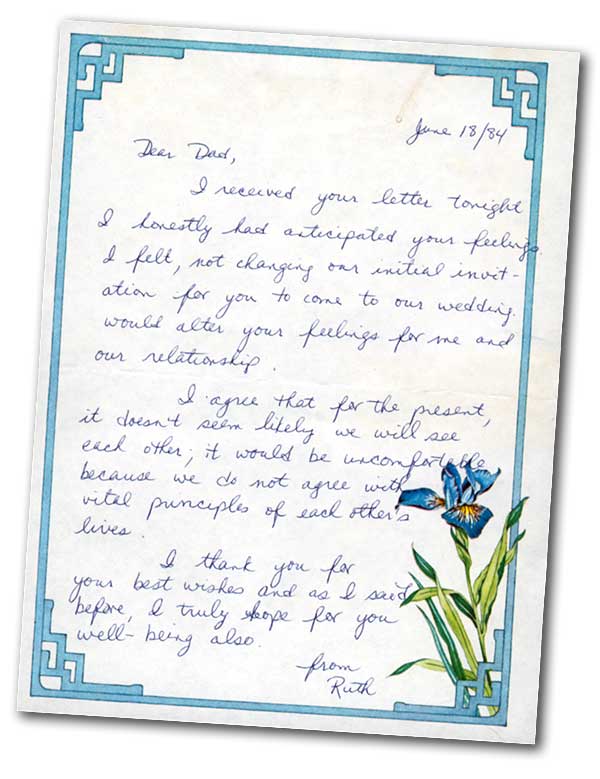 June 18/84
Dear Dad,
I received your letter tonight
I honestly had anticipated your feelings.
I felt, not changing our initial invit-
ation for you to come to our wedding.
would alter your feelings for me and
our relationship.
I agree that for the present,
it doesn't seem likely we will see
each other; it would be uncomfortable
because we do not agree with
vital principles of each other's
lives.
I thank you for
your best wishes and as I said
before, I truly hope for you
well-being also.
from
Ruth